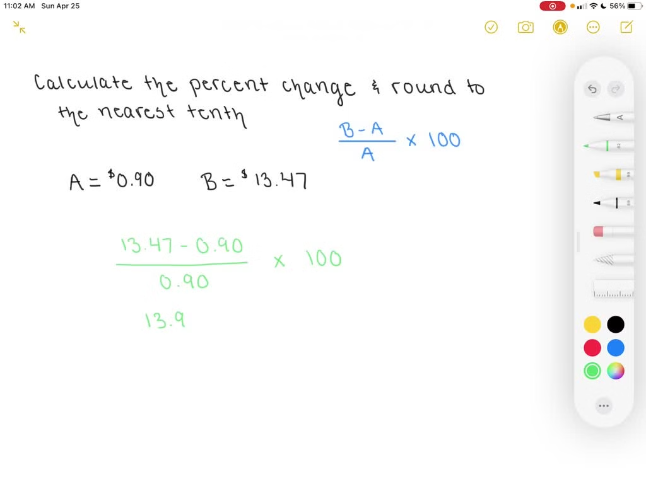 11:02 AM Sun Apr 25
56%
Calculate the percent change & round to
the nearest tenth
B-A
A
x 100
A = $0.90 B = $13.47
13.47 - 0.90
0.90
x 100
13.9